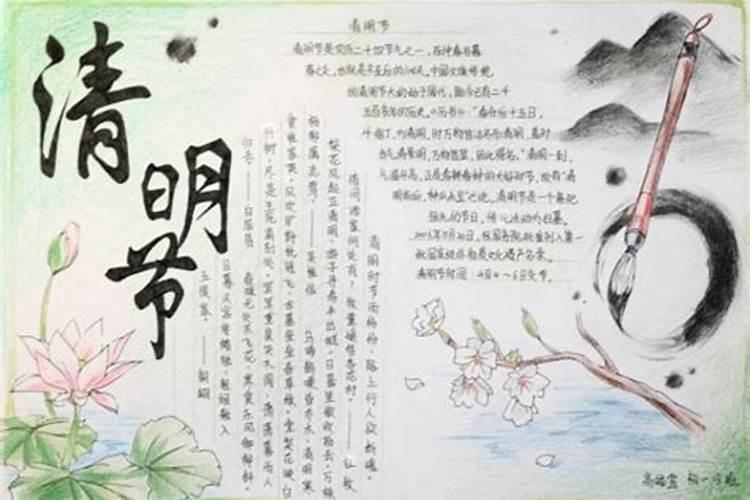 清明节
清明节
清明节是农历二十四节气之一，在仲春与暮
春之交，也就是冬至后的108天。中国汉族传统
的清明节大约始于周代，距今已有二千
五百多年的历史。《历书》：“春分后十五日，
斗指丁，为清明，时万物皆洁齐而清明，盖时
当气清景明，万物皆显，因此得名。”清明一到，
气温升高，正是春耕春种的大好时节，故有“清
明前后，种瓜点豆”之说。清明节是一个祭祀
祖先的节日，传统活动为扫墓。
2006年5月20日，经国务院批准列入第一
批国家级非物质文化遗产名录。
清明节时间：4月4～6日交节。
清明时节雨纷纷，路上行人欲断魂。
借问酒家何处有？牧童遥指杏花村。——杜牧
梨花风起正清明，游子寻春半出城。日暮笙歌收拾去，万株
杨柳属流莺。——吴惟信　乌啼鹊噪昏乔木，清明寒
食谁家哭。风吹旷野纸钱飞，古墓垒垒春草绿。棠梨花映白
杨树，尽是生死离别处。冥冥重泉哭不闻，萧萧暮雨人
归去。——白居易　春城无处不飞花，寒食东风御柳斜。
日暮汉宫传蜡烛，轻烟散入
五侯家。——韩翃
初一